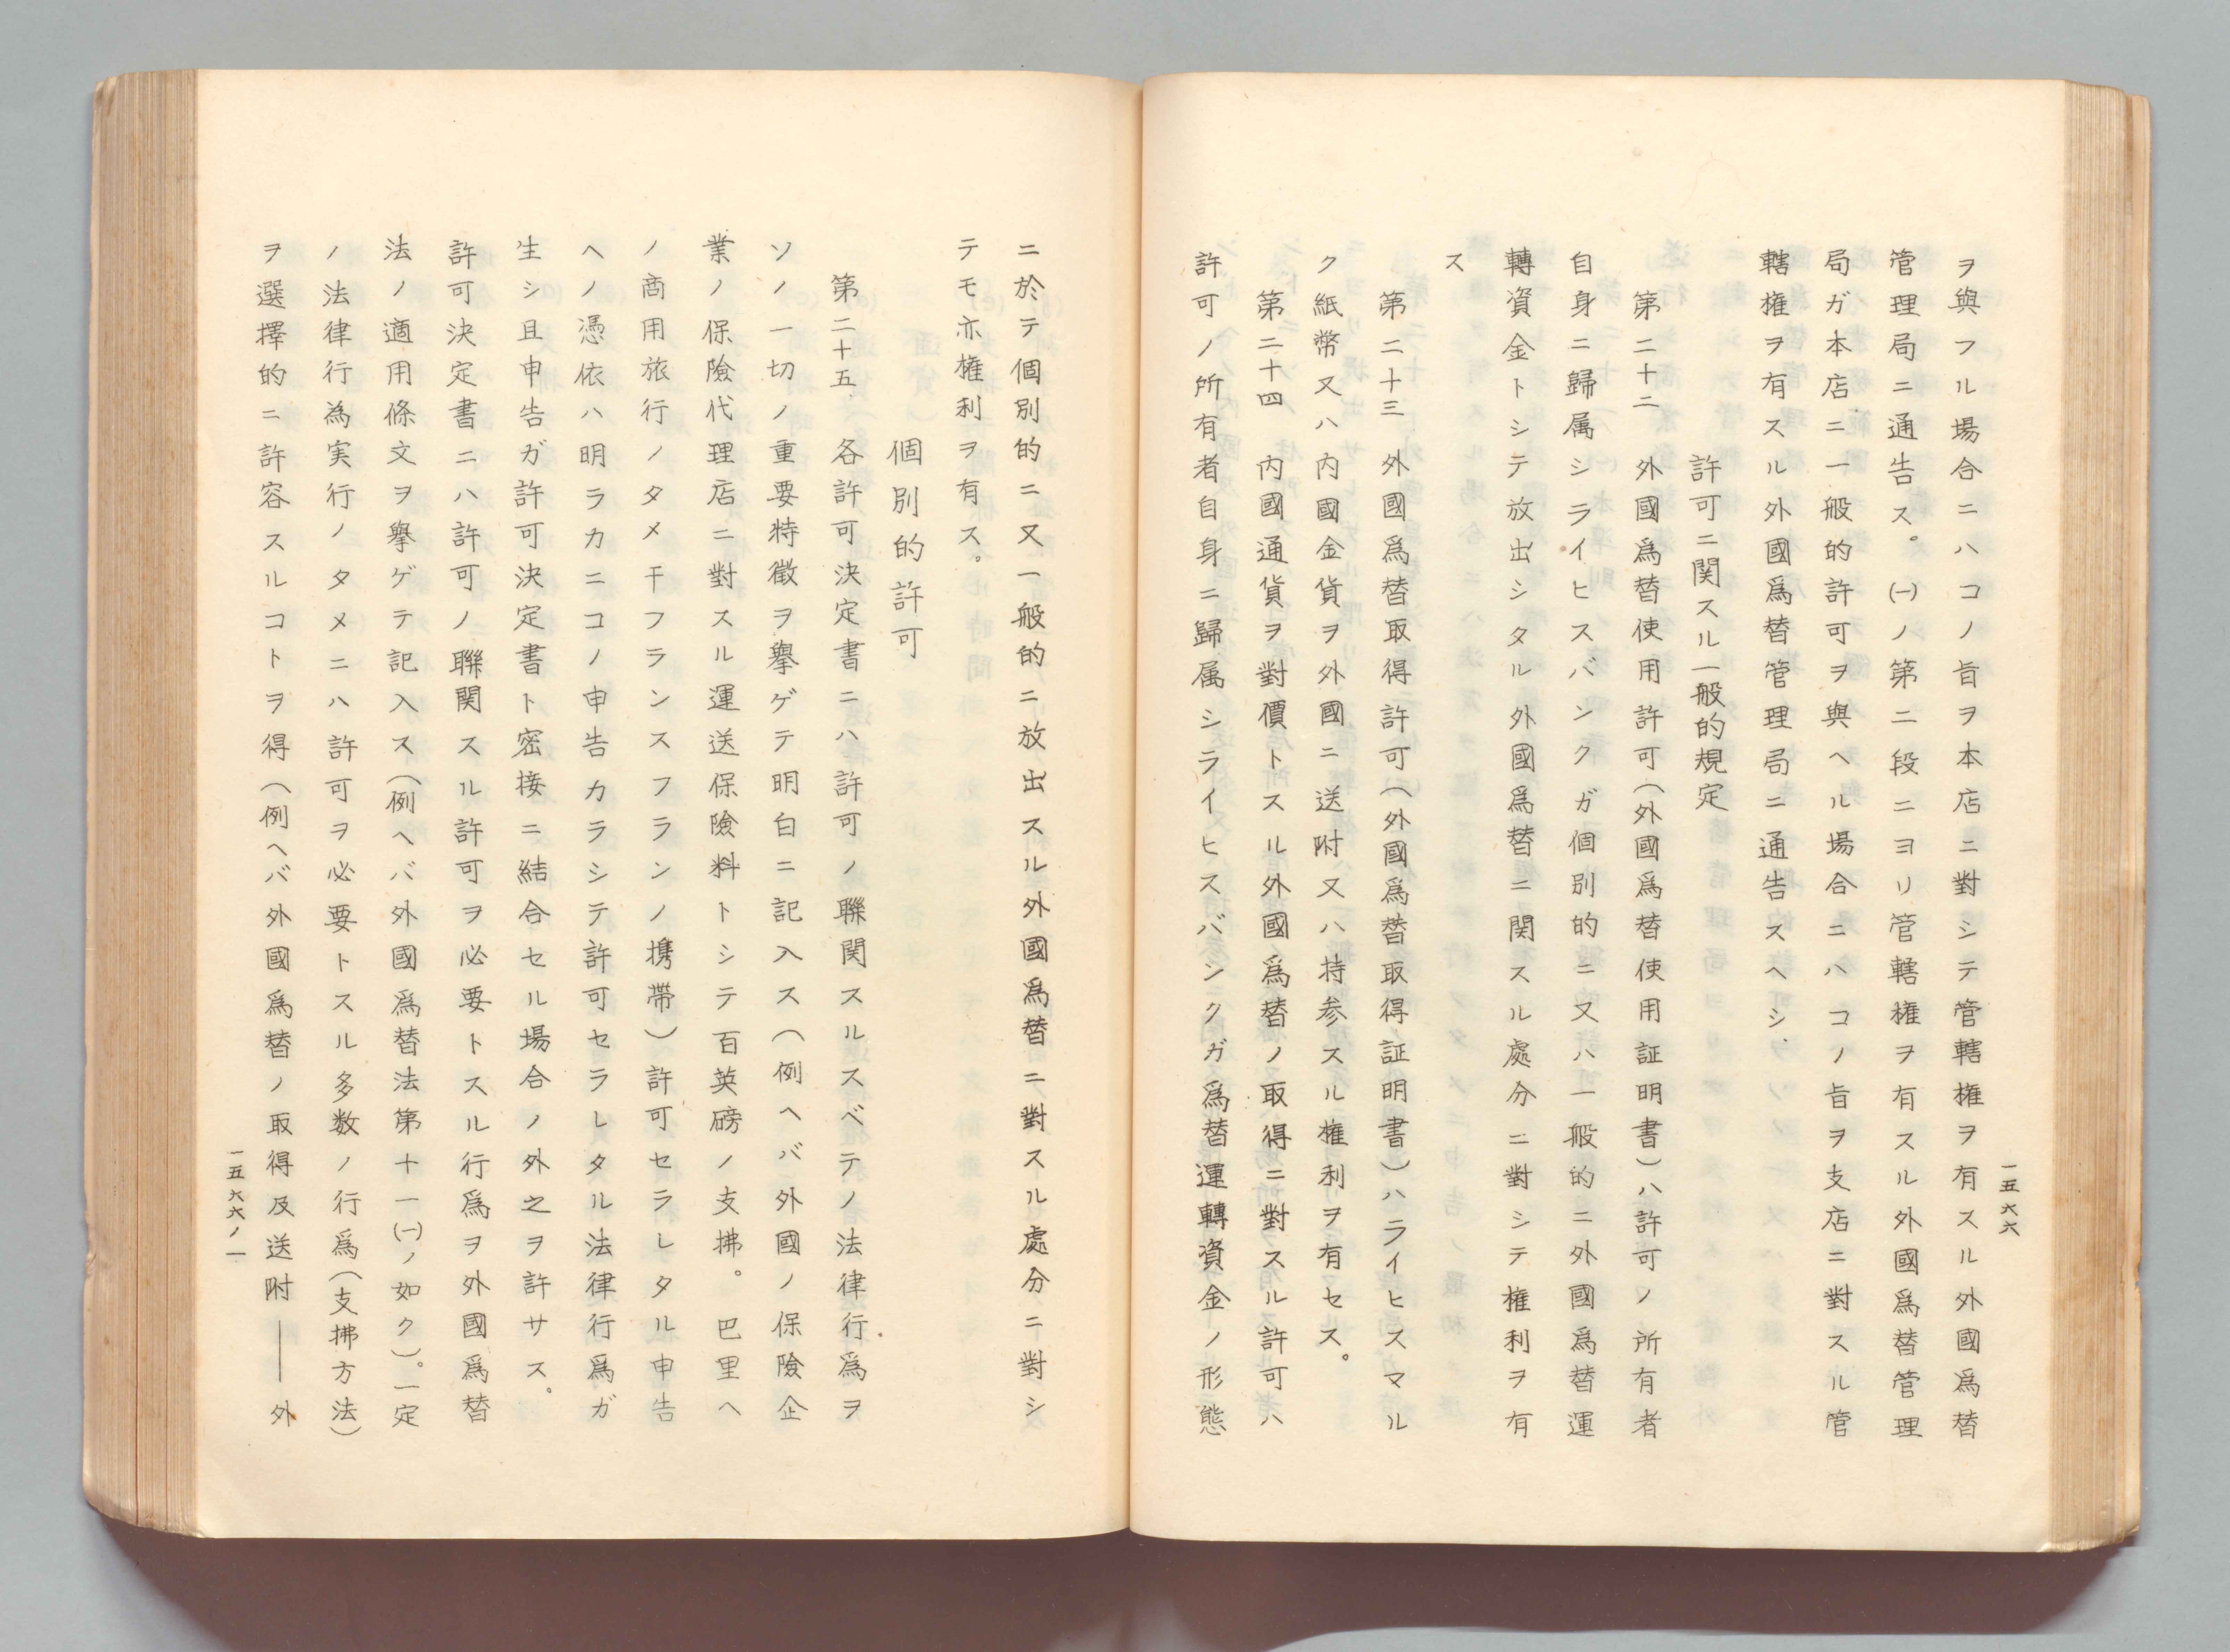 一五六六
ヲ與フル場合ニハコノ旨ヲ本店ニ對シテ管轄権ヲ有スル外國爲替
管理局ニ通告ス。(一)ノ第二段ニヨリ管轄権ヲ有スル外國爲替管理
局ガ本店ニ一般的許可ヲ與ヘル場合ニハコノ旨ヲ支店ニ對スル管
轄権ヲ有スル外國爲替管理局ニ通告スヘシ.
許可ニ関スル一般的規定
第二十二 外國爲替使用許可(外國爲替使用証明書)ハ許可ノ所有者
自身ニ歸属シライヒスバンクガ個別的ニ又ハ一般的ニ外國爲替運
轉資金トシテ放出シタル外國爲替ニ関スル處分ニ對シテ権利ヲ有
ス
第二十三 外國爲替取得許可(外國爲替取得証明書)ハライヒスマル
ク紙幣又ハ内國金貨ヲ外國ニ送附又ハ持参スル権利ヲ有セス。
第二十四 内國通貨ヲ對價トスル外國爲替ノ取得ニ對スル許可ハ
許可ノ所有者自身ニ歸属シライヒスバンクガ爲替運轉資金ノ形態
ニ於テ個別的ニ又一般的ニ放出スル外國爲替ニ對スル處分ニ對シ
テモ亦権利ヲ有ス。
個別的許可
第二十五. 各許可決定書ニハ許可ノ聯関スルスベテノ法律行爲ヲ
ソノ一切ノ重要特徴ヲ擧ゲテ明白ニ記入ス(例ヘバ外國ノ保險企
業ノ保險代理店ニ對スル運送保險料トシテ百英磅ノ支拂。巴里ヘ
ノ商用旅行ノタメ千フランスフランノ携帶)許可セラレタル申告
ヘノ憑依ハ明ラカニコノ申告カラシテ許可セラレタル法律行爲ガ
生シ且申告ガ許可決定書ト密接ニ結合セル場合ノ外之ヲ許サス。
許可決定書ニハ許可ノ聯関スル許可ヲ必要トスル行爲ヲ外國爲替
法ノ適用條文ヲ擧ゲテ記入ス(例ヘバ外國爲替法第十一(一)ノ如ク)。一定
ノ法律行為実行ノタメニハ許可ヲ必要トスル多数ノ行爲(支拂方法)
ヲ選擇的ニ許容スルコトヲ得(例ヘバ外國爲替ノ取得及送附——外
一五六六ノ一